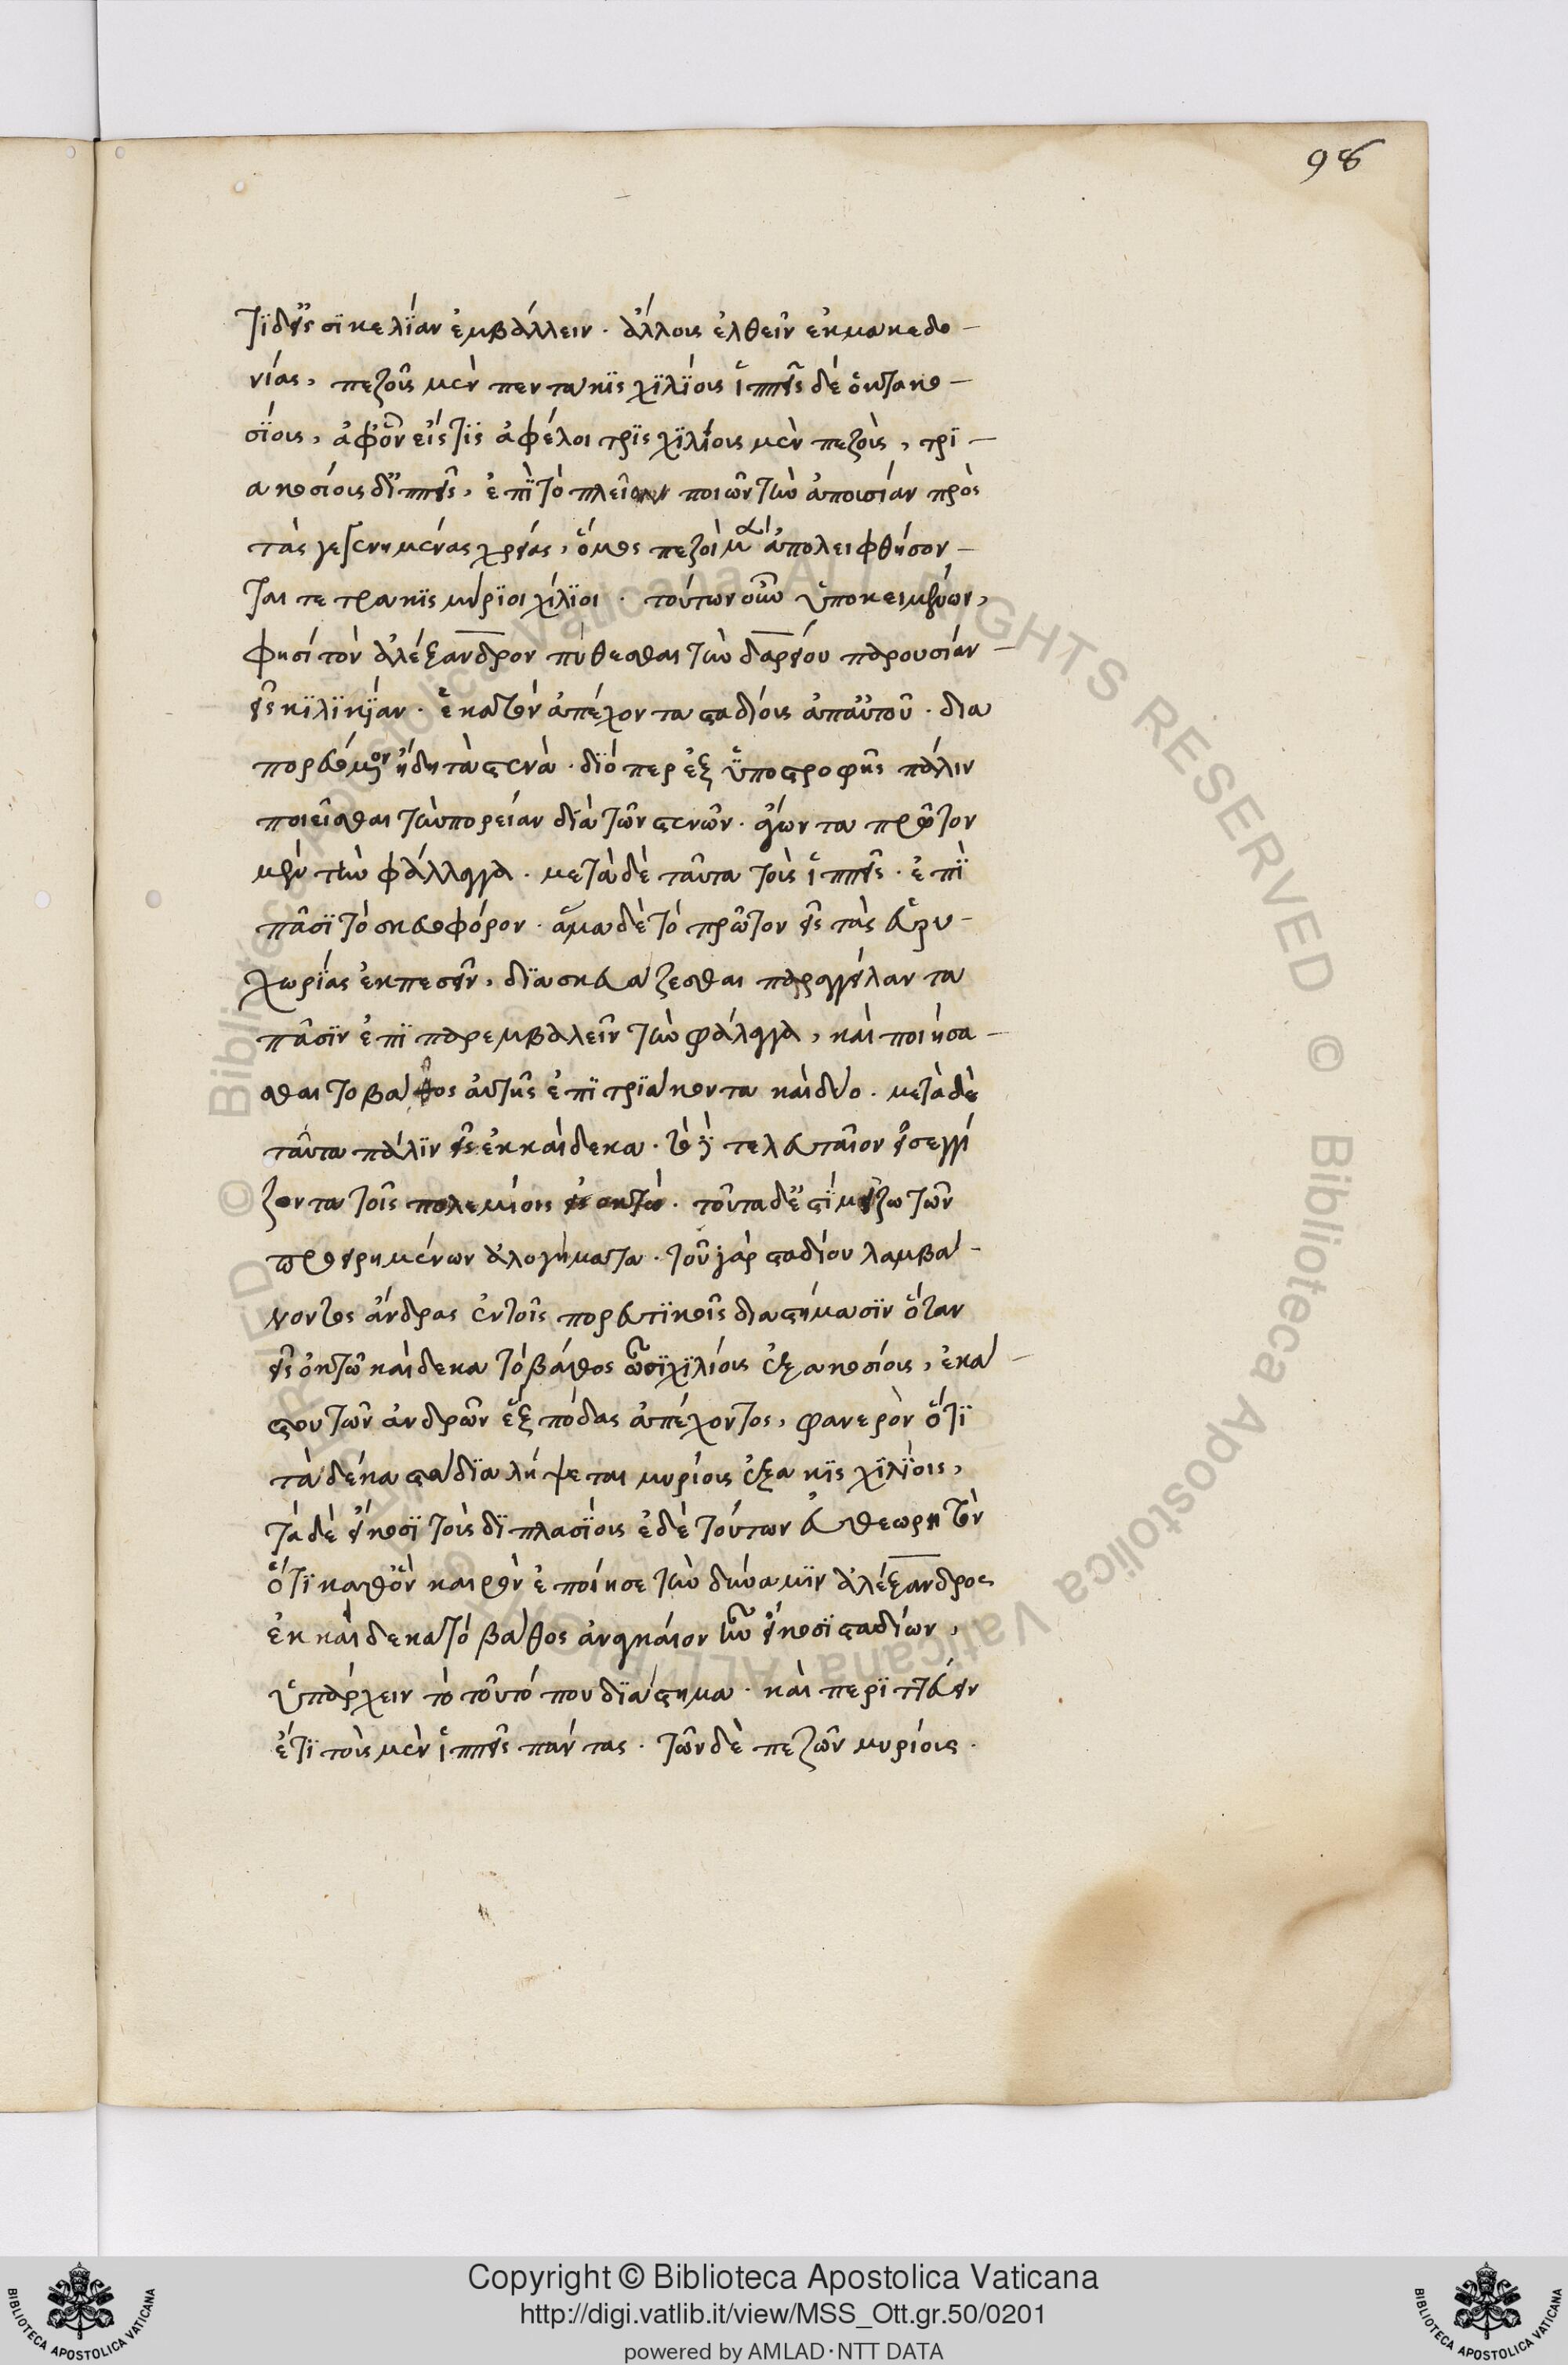 98
τϊ δ' εἰς σϊκελΐαν ἐμβάλλειν · ἄλλοις ἐλθεῖν ἐκ μακεδο -
νίας, πεζοῖς μὲν πεντακϊς χϊλΐοις ἱππεῖς δὲ ὀκτακο -
σΐοις, ἀφ' ὧν εἴς τϊς ἀφέλοι τρϊς χϊλΐοις μὲν πεζοὶς, τρϊ -
ακοσίοις δ' ἱππεῖς, ἐπὶ τὸ πλεῖον ποιῶν τὴν ἀπουσίαν πρὸς
τὰς γεγενημένας χρείας, ὅμως πεζοὶ μὲν ἀπολειφθήσον -
ται τετρακϊς μύρϊοι χίλϊοι · τούτων οὖν ὑποκειμένων,
φησὶ τὸν ἀλέξανδρον πύθεσθαι τὴν δαρείου παρουσίαν -
εἰς κϊλϊκΐαν · ἑκατὸν ἀπέχοντα σταδίοις ἀπ' αὐτοῦ · δια
πορευόμενον ἤδη τὰ στενὰ · δϊόπερ ἐξ ὑποστροφῆς πάλιν
ποιεῖσθαι τὴν πορείαν διὰ τῶν στενῶν · ἄγοντα πρῶτον
μὲν τὴν φάλλαγγα · μετὰ δὲ ταῦτα τοὺς ἱππεῖς · ἐπὶ
πᾶσϊ τὸ σκευοφόρον · ἅμα δὲ τὸ πρῶτον εἰς τὰς εὐρυ -
χωρΐας ἐκπεσεῖν, δϊασκευάζεσθαι παραγγείλαντα
πᾶσϊν ἐπϊπαρεμβαλεῖν τὴν φάλαγγα, καὶ ποιήσα -
σθαι τὸ βάθος αὐτῆς ἐπϊ τρϊάκοντα καὶ δύο · μετὰ δὲ
ταῦτα πάλϊν εἰς ἐκκαίδεκα · τὸ δὲ τελευταῖον εἰς ἐγγί
ζοντα τοῖς πολεμίοις εἰς ὀκτώ · τοῦτα δ' ἐστΐ μείζω τῶν
προειρημένων ἀλογήματα · τοῦ γὰρ σταδίου λαμβά -
νοντος ἄνδρας ἐν τοῖς πορευτϊκοῖς διαστήμασϊν ὅταν
εἰς ὀκτῶ καὶ δεκα τὸ βάθος ὦσϊ χϊλίοις ἑξακοσίοις, ἑκά -
στου τῶν ἀνδρῶν ἓξ πόδας ἀπέχοντος, φανερὸν ὅτϊ
τὰ δέκα στάδϊα λήψεται μυρίοις ἑξακϊς χϊλΐοις,
τὰ δὲ εἴκοσϊ τοὺς δϊπλασΐοις ἐδὲ τούτων εὐθεώρητὸν
ὅτϊ καθ' ὃν καιρὸν ἐποίησε τὴν δύναμϊν ἀλέξανδρος
ἐκκαίδεκα τὸ βάθος ἀναγκαίον ἦν εἴκοσϊ σταδίων,
ὑπάρχειν τὸ τοῦτό που δϊάστημα · καὶ περϊττεύειν
ἔτϊ τοὺς μὲν ἱππεῖς πάντας · τῶν δὲ πεζῶν μυρίοις ·
Copyright © Biblioteca Apostolica Vaticana
http://digi.vatlib.it/view/MSS_Ott.gr.50/0201
powered by AMLAD·NTT DATA